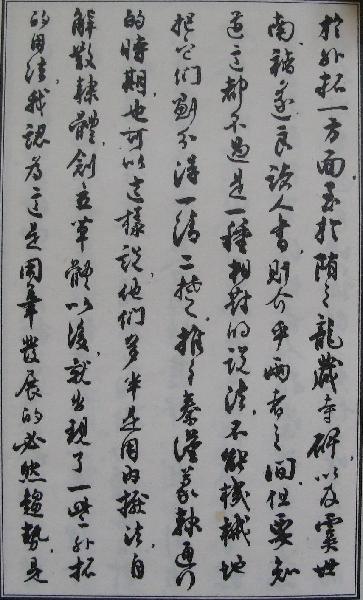 於外拓一方面，至於隋之龍藏寺碑，以及虞世
南、褚遂良諸人書，則介乎兩者之間。但要知
道這都不過是一種相對的說法，不能機械地
把它們劃分得一清二楚。推之秦漢篆隸通行
的時期，也可以這樣說，他們多半是用內擫法，自
解散隸體，創立草體以後，就出現了一些外拓
的用法，我認為這是因筆發展的必然趨勢，是